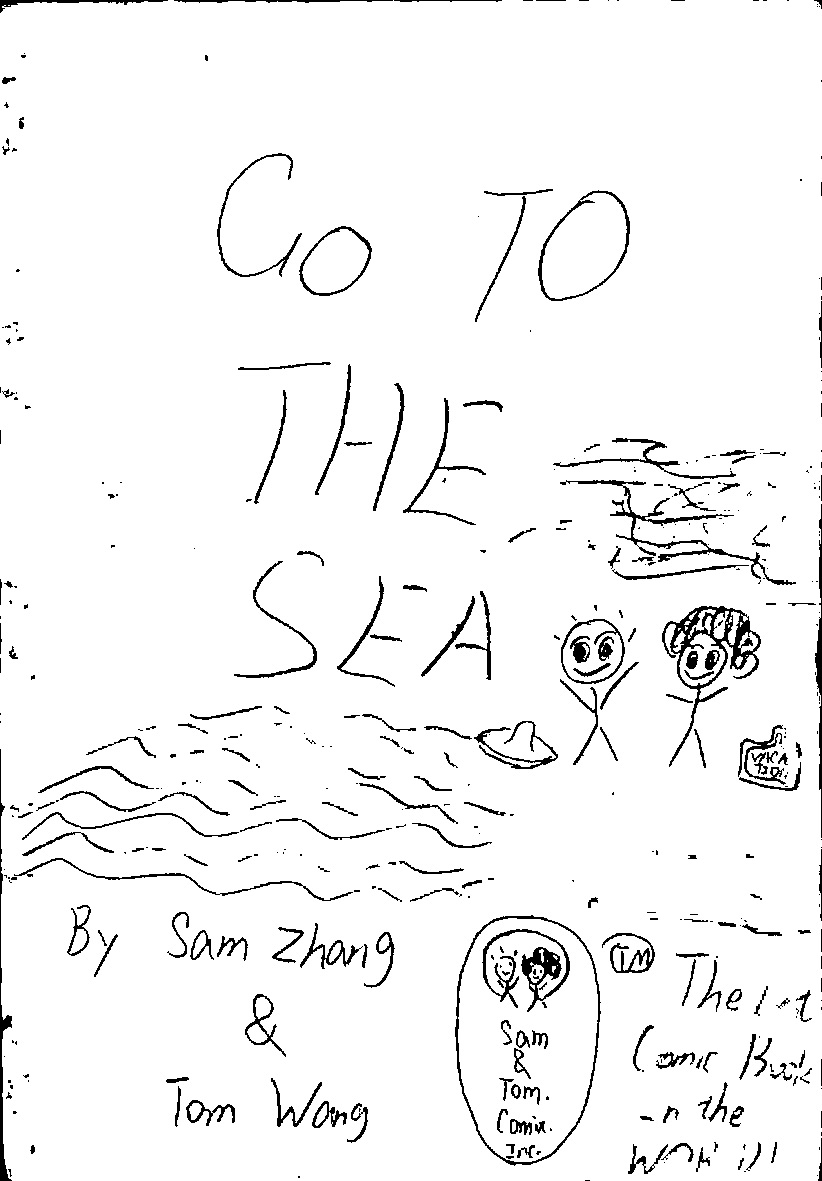 GO TO
THE
SEA
By Sam Zhang
&
Tom Wang
Sam
&
Tom.
Comix.
Inc.
TM
The 1st
Comic Book
in the